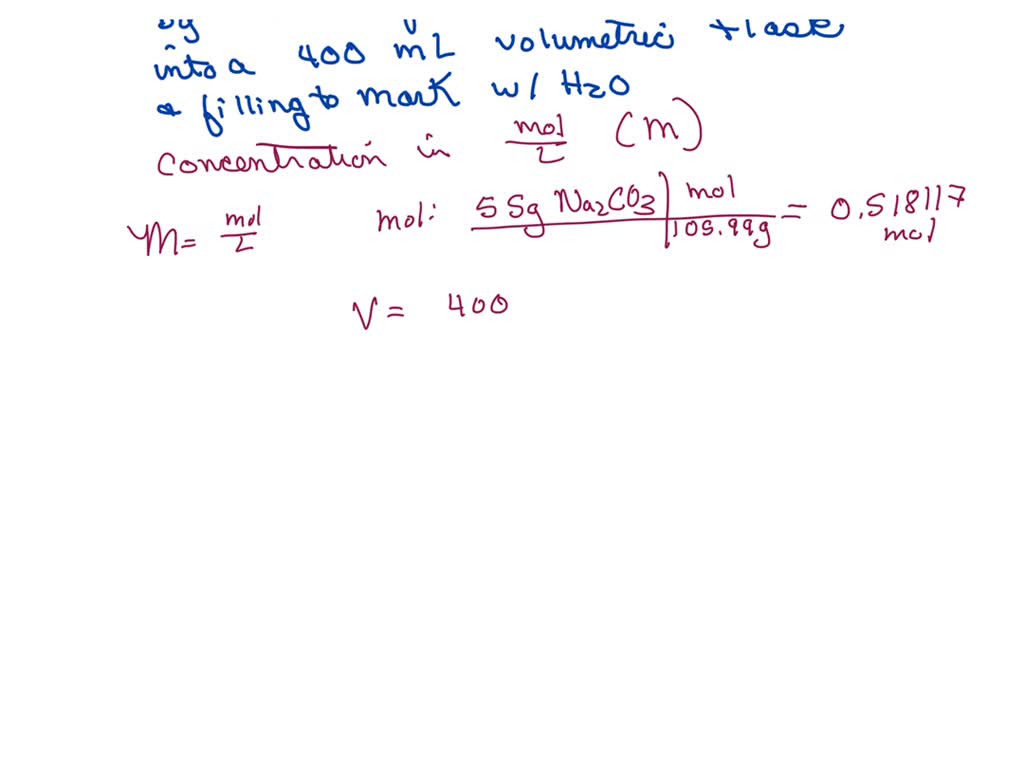 by
into a 400 mL volumetric flask
& filling to mark w/ H2O
Concentration in mol/L (M)
M = mol/L mol: 55g Na2CO3 | mol / 105.99g = 0.518117 mol
V = 400